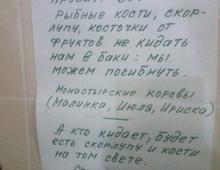 рыбные кости, скор-
лупу, косточки от
фруктов не кидать
нам в баки: мы
можем погибнуть.
Монастырские коровы
(Малинка, Июля, Ириска)
А кто кидает, будет
есть скорлупу и кости
на том свете.